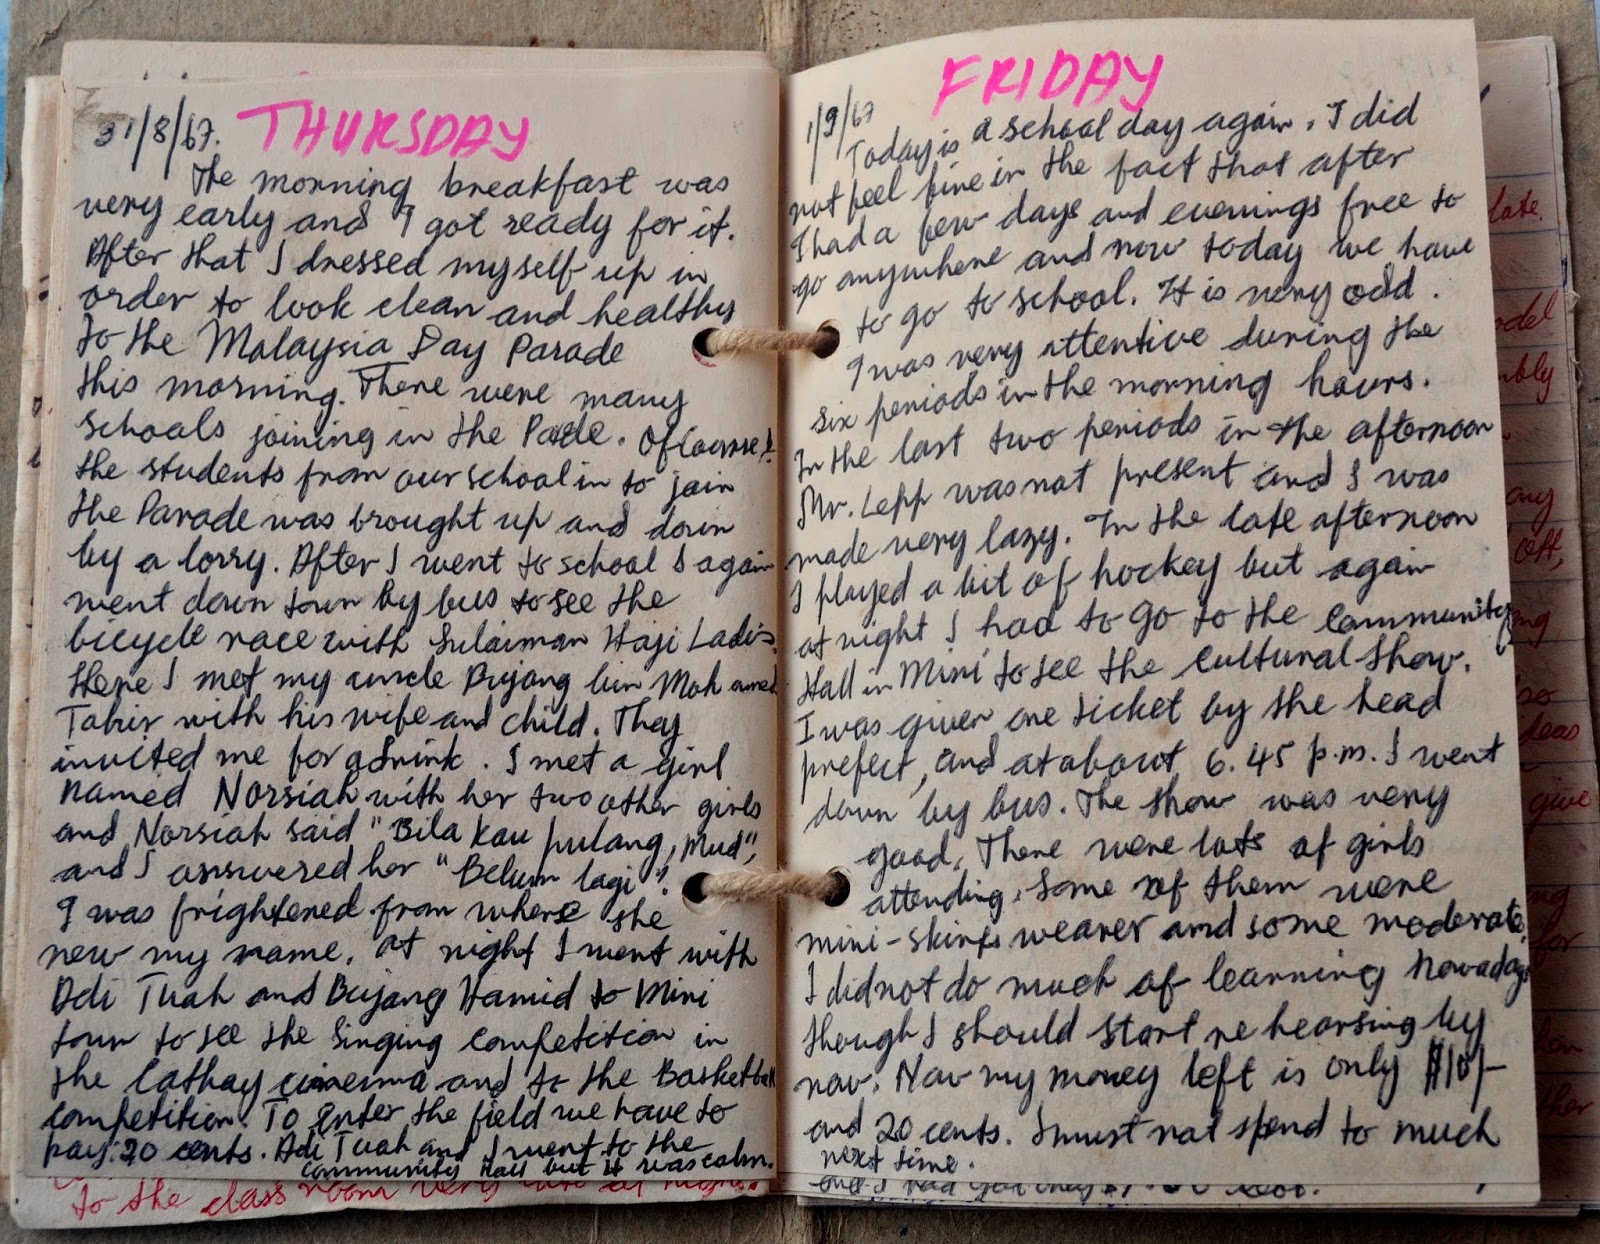 31/8/67. THURSDAY
The morning breakfast was
very early and I got ready for it.
After that I dressed myself up in
order to look clean and healthy
to the Malaysia Day Parade
this morning. There were many
schools joining in the Parade. Of Course!
the students from our school in to join
the Parade was brought up and down
by a lorry. After I went to school I again
went down town by bus to see the
bicycle race with Sulaiman Haji Ladis.
There I met my uncle Pujang bin Mohamed
Tahir with his wife and child. They
invited me for a drink. I met a girl
named Norsiah with her two other girls
and Norsiah said "Bila kau pulang, Mud",
and I answered her "Belum lagi".
I was frightened from where she
new my name. At night I went with
Adi Tuah and Bujang Hamid to Miri
town to see the Singing Competition in
the Cathay cinema and to the Basketball
competition. To enter the field we have to
pay 20 cents. Adi Tuah and I went to the
community Hall but it was calm.
to the class room very
FRIDAY
1/9/67
Today is a school day again. I did
not feel fine in the fact that after
I had a few days and evenings free to
go anywhere and now today we have
to go to school. It is very odd.
I was very attentive during the
six periods in the morning hours.
In the last two periods in the afternoon
Mr. Lepp was not present and I was
made very lazy. In the late afternoon
I played a bit of hockey but again
at night I had to go to the Community
Hall in Miri to see the Cultural Show.
I was given one ticket by the head
prefect, and at about 6.45 p.m. I went
down by bus. The show was very
good. There were lots of girls
attending. Some of them were
mini-skirts wearer and some moderate.
I did not do much of learning nowadays
though I should start rehearsing by
now. Now my money left is only $10/-
and 20 cents. I must not spend to much
next time.
late.
odel
mbly
any
ing
so
deas
give
ng
for